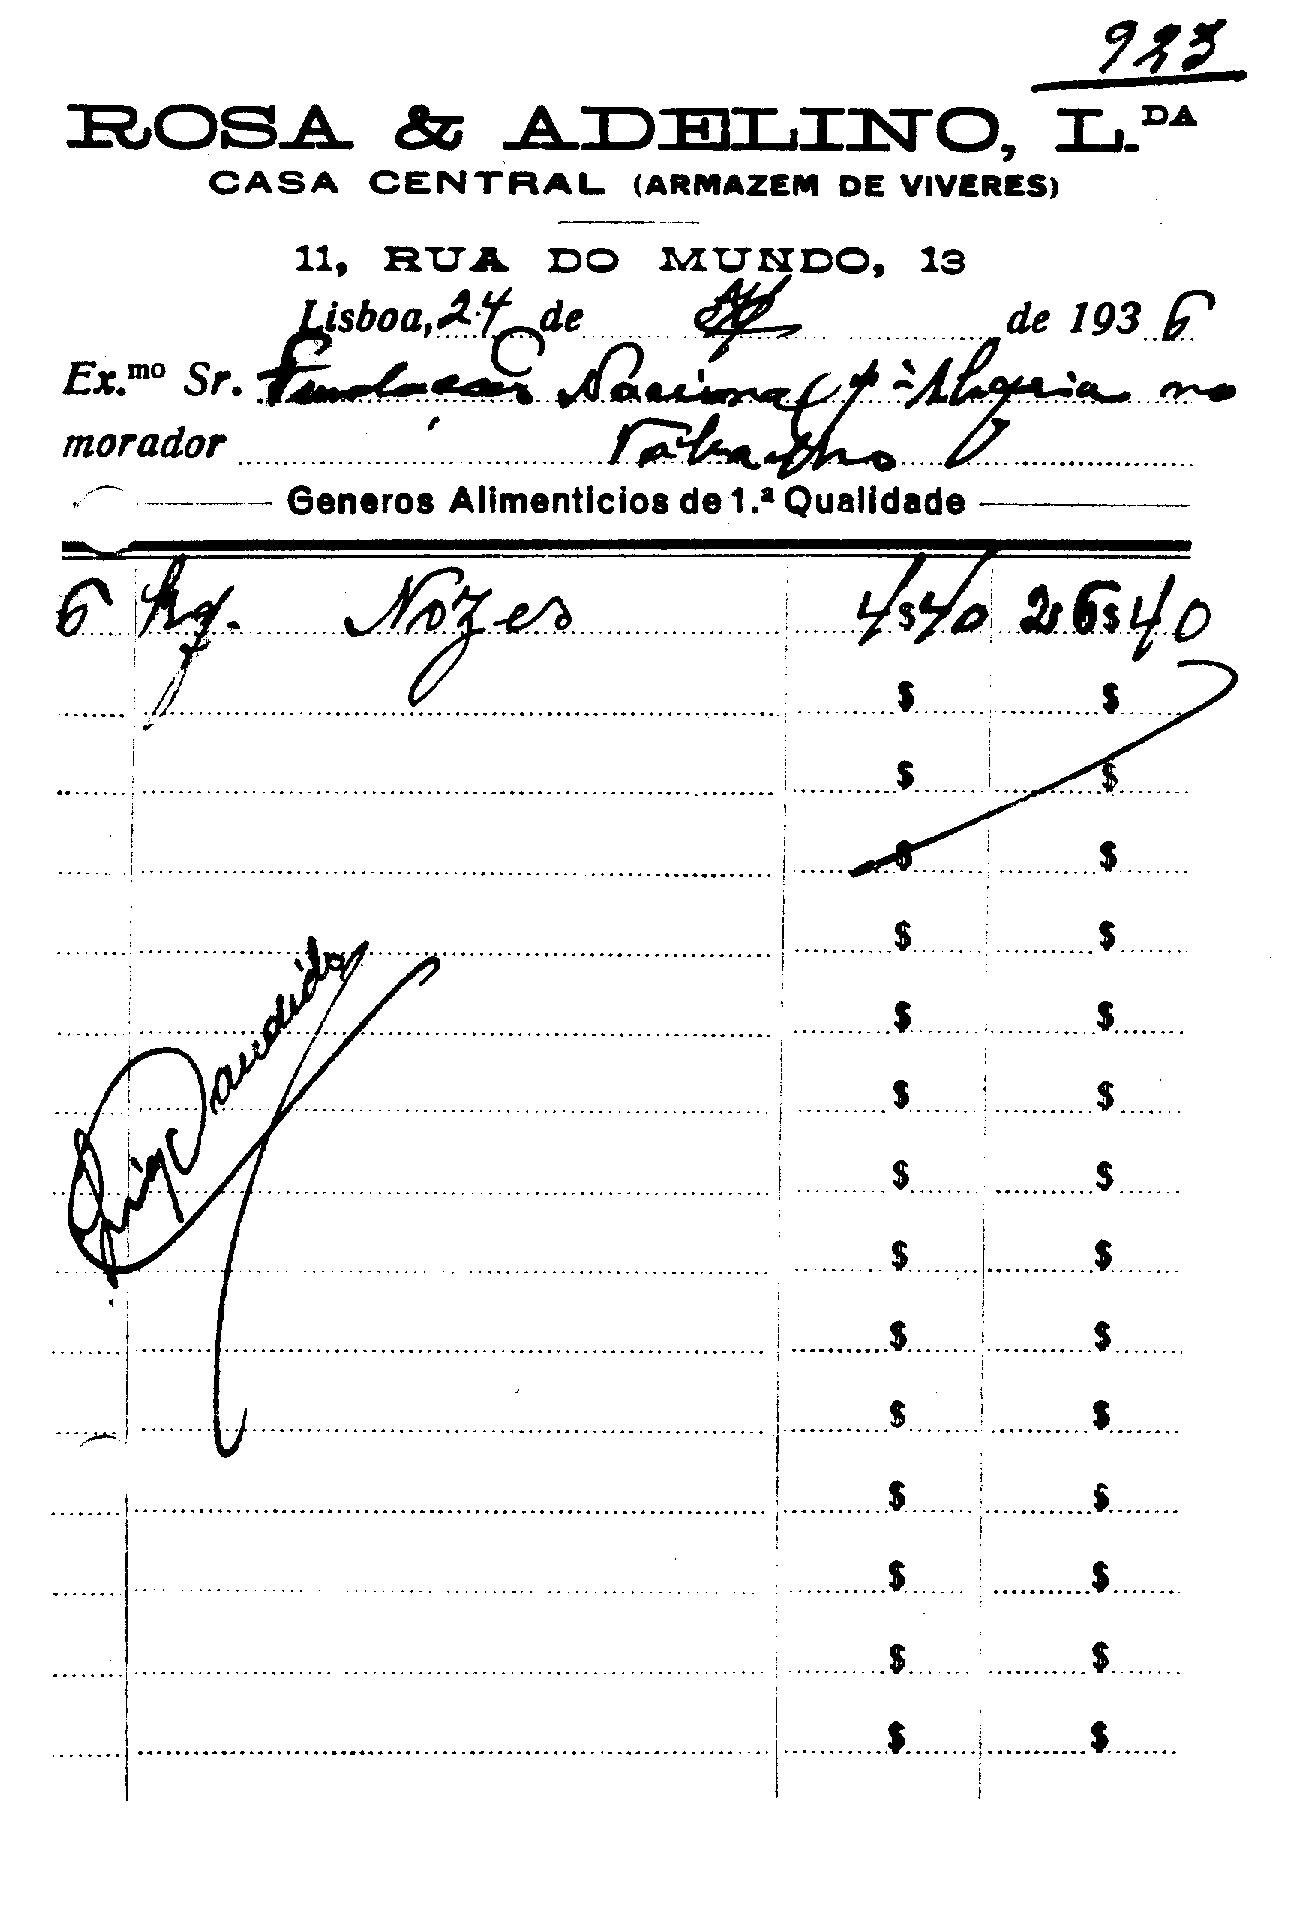 923
ROSA & ADELINO, L.DA
CASA CENTRAL (ARMAZEM DE VIVERES)
11, RUA DO MUNDO, 13
Lisboa, 24 de de 1936
Ex.mo Sr. Fundação Nacional p. a Alegria no
morador Trabalho
Generos Alimenticios de 1.ª Qualidade
6 kg. Nozes 4$40 26$40
$ $
$ $
$ $
$ $
$ $
$ $
$ $
$ $
$ $
$ $
$ $
$ $
$ $
$ $
Luiz Candido